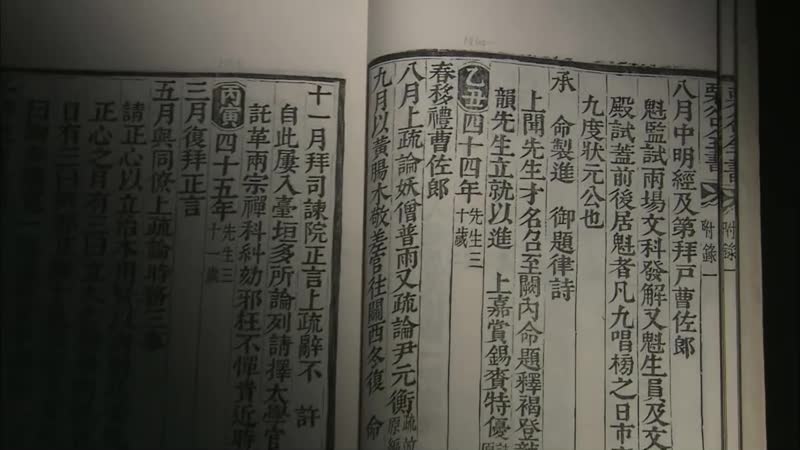 八月中明經及第拜戶曹佐郎
魁監試兩場文科發解又魁生員及文
殿試蓋前後居魁者凡九唱榜之日市
九度狀元公也
承 命製進 御題律詩
上聞先生才名召至闕內命題釋褐登龍
韻先生立就以進 上嘉賞錫賚特優
乙丑四十四年先生三十歲
春移禮曹佐郎
八月上疏論妖僧普雨又疏論尹元衡
九月以黃腸木敬差官往關西冬復 命
十一月拜司諫院正言上疏辭不 許
自此屢入臺垣多所論列請擇太學官
託革兩宗禪科糾劾邪枉不憚貴近時
丙寅四十五年先生三十一歲
三月復拜正言
五月與同僚上疏論時務三
請正心以立治本用
正心之目有三曰立
目有三曰
附錄一
附錄一